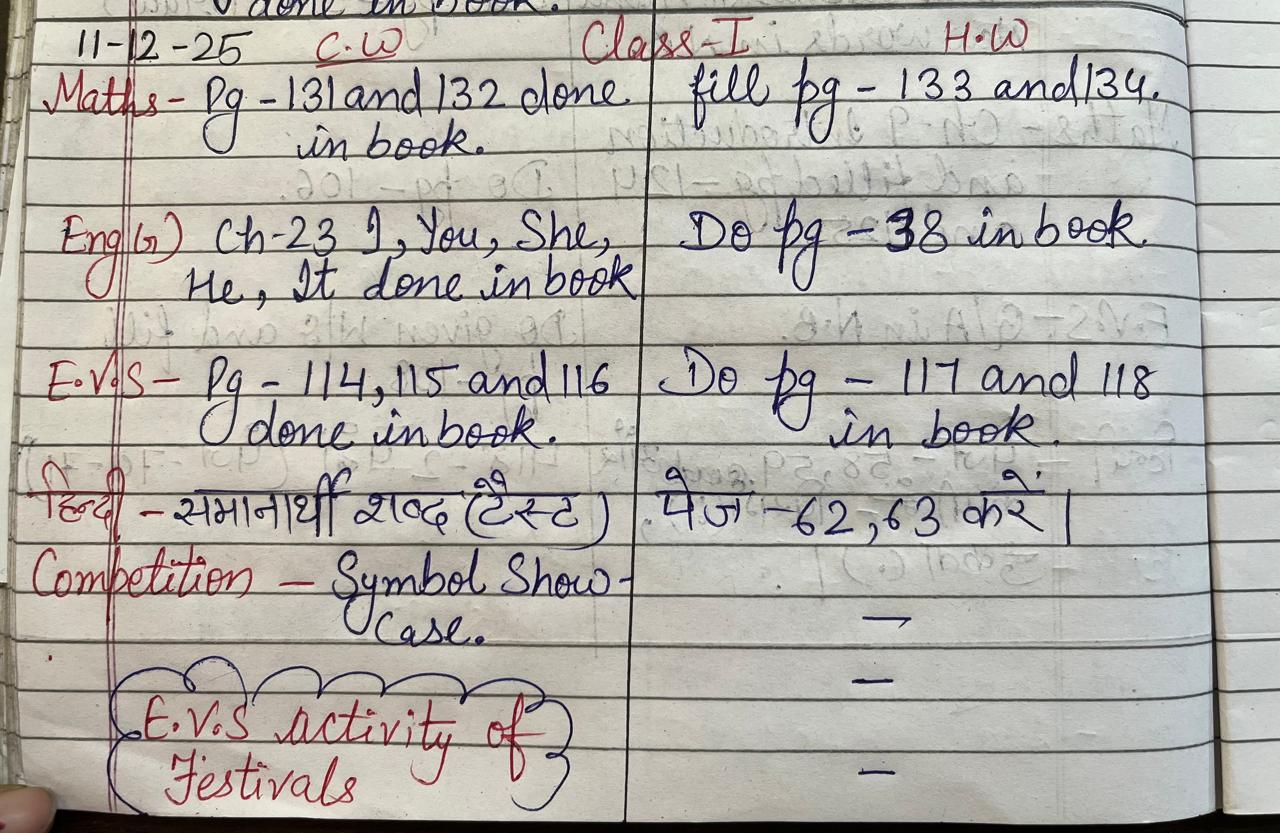 done in book.
11-12-25 C.W Class-I H.W
Maths - Pg - 131 and 132 done fill pg - 133 and 134.
in book.
Eng(G) Ch-23 I, You, She, Do pg - 38 in book.
He, It done in book
E.V.S - Pg - 114, 115 and 116 Do pg - 117 and 118
done in book. in book.
हिन्दी - समानार्थी शब्द (टैस्ट) पेज - 62, 63 करें।
Competition - Symbol Show-
Case. —
—
E.V.S activity of
Festivals —